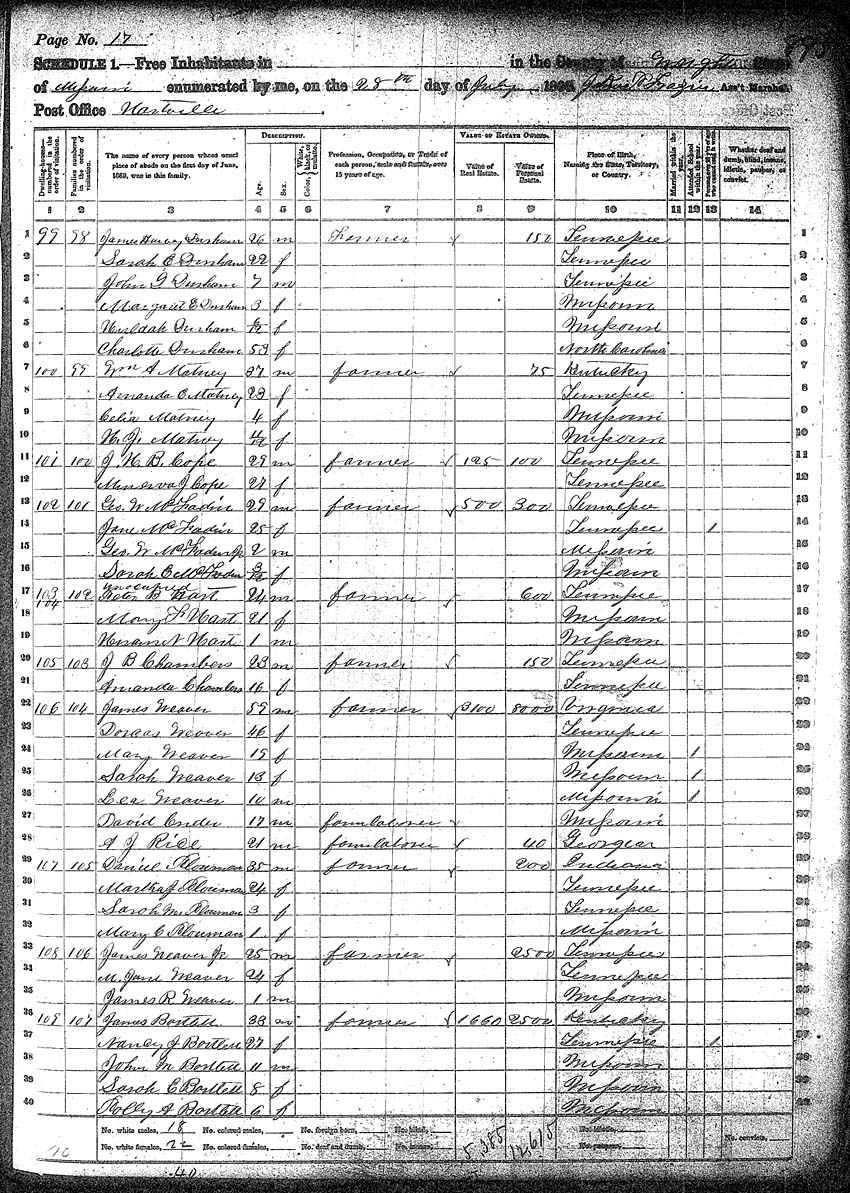 Page No. 17
SCHEDULE 1.—Free Inhabitants in in the County of Wright
of Missouri enumerated by me, on the 28th day of July 1860. Ass't Marshal.
Post Office Hartville
Dwelling-houses—numbered in the order of visitation.
Families numbered in the order of visitation.
The name of every person whose usual place of abode on the first day of June, 1860, was in this family.
DESCRIPTION.
Age.
Sex.
Color, White, black, or mulatto.
Profession, Occupation, or Trade of each person, male and female, over 15 years of age.
VALUE OF ESTATE OWNED.
Value of Real Estate.
Value of Personal Estate.
Place of Birth, Naming the State, Territory, or Country.
Married within the year.
Attended School within the year.
Whether deaf and dumb, blind, insane, idiotic, pauper, or convict.
1 2 3 4 5 6 7 8 9 10 11 12 13 14
1 99 98 James Harvey Dunham 26 m Farmer 150 Tennessee 1
2 Sarah E Dunham 22 f Tennessee 2
3 John G Dunham 7 m Tennessee 3
4 Margaret E Dunham 3 f Missouri 4
5 Huldah Dunham f Missouri 5
6 Charlotte Dunham 53 f North Carolina 6
7 100 99 Wm A Matney 37 m farmer 75 Kentucky 7
8 Amanda C Matney 23 f Tennessee 8
9 Celia Matney 4 f Missouri 9
10 N. J. Matney 4/12 f Missouri 10
11 101 100 J. H. B. Cope 29 m farmer 125 100 Tennessee 11
12 Minerva J Cope 27 f Tennessee 12
13 102 101 Geo. W McFadin 29 m farmer 500 300 Tennessee 13
14 Jane McFadin 25 f Tennessee 1 14
15 Geo. W McFadin Jr 2 m Missouri 15
16 Sarah E McFadin 3/12 f Missouri 16
unoccupied
17 103 104 102 Peter B Hart 24 m farmer 600 Tennessee 17
18 Mary F Hart 21 f Missouri 18
19 Hiram N Hart 1 m Missouri 19
20 105 103 J B Chambers 23 m farmer 150 Tennessee 20
21 Amanda Chambers 16 f Tennessee 21
22 106 104 James Weaver 59 m farmer 3100 8000 Virginia 22
23 Dorcas Weaver 46 f Tennessee 23
24 Mary Weaver 19 f Missouri 1 24
25 Sarah Weaver 13 f Missouri 1 25
26 Lea Weaver 10 m Missouri 1 26
27 David 17 m farm laborer Missouri 27
28 A J Rice 21 m farm laborer 40 Georgear 28
29 107 105 Daniel Plouman 35 m farmer 200 Indiana 29
30 Martha J Plouman 24 f Tennessee 30
31 Sarah M Plouman 3 f Tennessee 31
32 Mary C Plouman 1 f Missouri 32
33 108 106 James Weaver Jr 25 m farmer 2500 Tennessee 33
34 M. Jane Weaver 24 f Tennessee 34
35 James R Weaver 1 m Missouri 35
36 109 107 James Bartlett 33 m farmer 1660 2500 Kentucky 36
37 Nancy J Bartlett 27 f Tennessee 1 37
38 John M Bartlett 11 m Missouri 38
39 Sarah E Bartlett 8 f Missouri 39
40 Polly A Bartlett 6 f Missouri 40
No. white males, 18 No. colored males, No. foreign born, No. blind, No. idiotic,
No. white females, 22 No. colored females, No. deaf and dumb, No. insane, No. paupers, No. convicts,
5,385 12,615
40